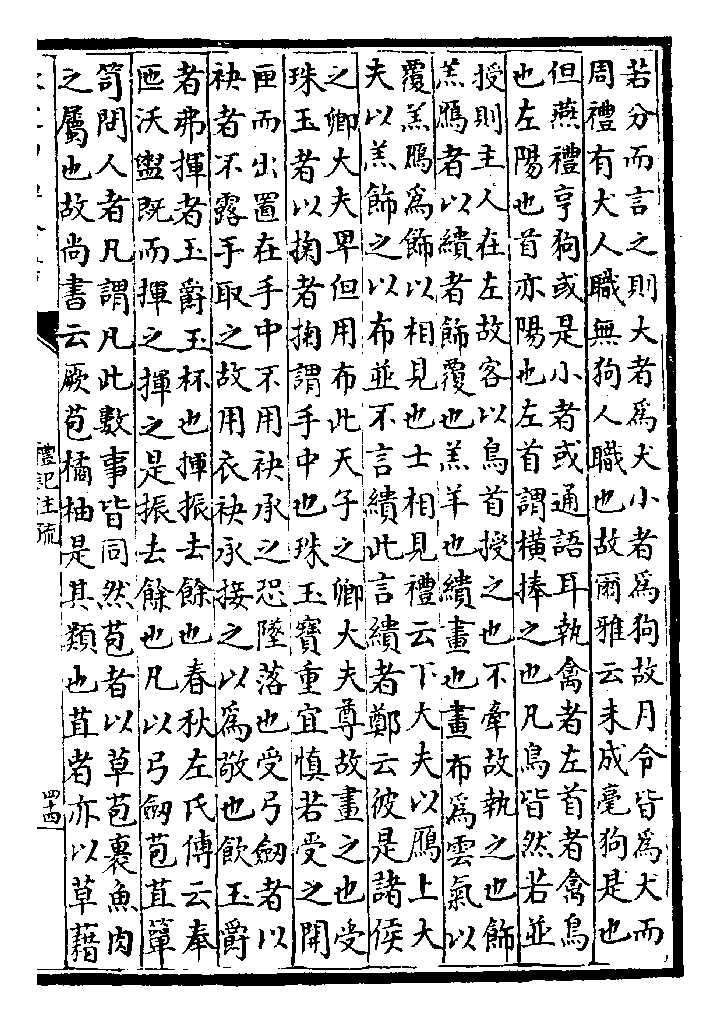 若分而言之則大者為犬小者為狗故月令皆為犬而
周禮有犬人職無狗人職也故爾雅云未成毫狗是也
但燕禮亨狗或是小者或通語耳執禽者左首者禽鳥
也左陽也首亦陽也左首謂橫捧之也凡鳥皆然若並
授則主人在左故客以鳥首授之也不牽故執之也飾
羔鴈者以繢者飾覆也羔羊也繢畫也畫布為雲氣以
覆羔鴈為飾以相見也士相見禮云下大夫以鴈上大
夫以羔飾之以布並不言繢此言繢者鄭云彼是諸侯
之卿大夫卑但用布此天子之卿大夫尊故畫之也受
珠玉者以掬者掬謂手中也珠玉寶重宜慎若受之開
匣而出置在手中不用袂承之恐墜落也受弓劒者以
袂者不露手取之故用衣袂承接之以為敬也飲玉爵
者弗揮者玉爵玉杯也揮振去餘也春秋左氏傳云奉
匜沃盥既而揮之揮之是振去餘也凡以弓劒苞苴簞
笥問人者凡謂凡此數事皆同然苞者以草苞裹魚肉
之屬也故尚書云厥苞橘柚是其類也苴者亦以草藉
禮記注疏
四十四